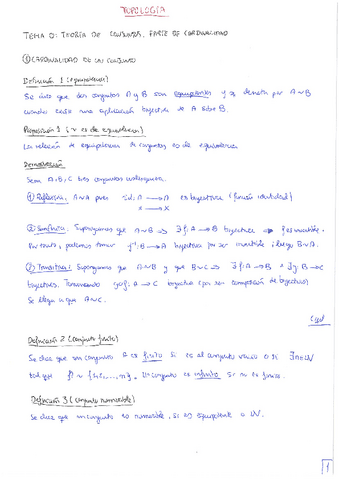 TOPOLOGÍA
TEMA 0: TEORÍA DE CONJUNTOS. PARTE DE CARDINALIDAD
① CARDINALIDAD DE UN CONJUNTO
Definición 1 (equipotencia)
Se dice que dos conjuntos A y B son equipotentes y se denota por A∼B
cuando existe una aplicación biyectiva de A sobre B.
Proposición 1 (∼ es de equivalencia)
La relación de equipotencia de conjuntos es de equivalencia.
Demostración
Sean A, B, C tres conjuntos cualesquiera.
① Reflexiva: A∼A pues id: A → A es biyectiva (función identidad)
x → x
② Simétrica: Supongamos que A∼B ⇒ ∃ f: A → B biyectiva ⇒ f es invertible.
Por tanto, podemos tomar f⁻¹: B → A biyectiva por ser invertible y luego B∼A.
③ Transitiva: Supongamos que A∼B y que B∼C ⇒ ∃ f: A → B ∃ g: B → C
biyectivas. Tomando g∘f: A → C biyectiva (por ser composición de biyectivas)
Se llega a que A∼C.
Definición 2 (conjunto finito)
Se dice que un conjunto A es finito si es el conjunto vacío o si ∃ n∈ℕ
tal que A ∼ {1, 2, ..., n}. Un conjunto es infinito si no es finito.
Definición 3 (conjunto numerable)
Se dice que un conjunto es numerable, si es equipotente a ℕ.
1